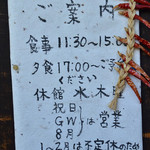 ご案内
食事 11:30〜15:0
夕食 17:00〜ご予
ください
休館 水木日
祝日
GWは営業
8月
1〜2月は不定休のため